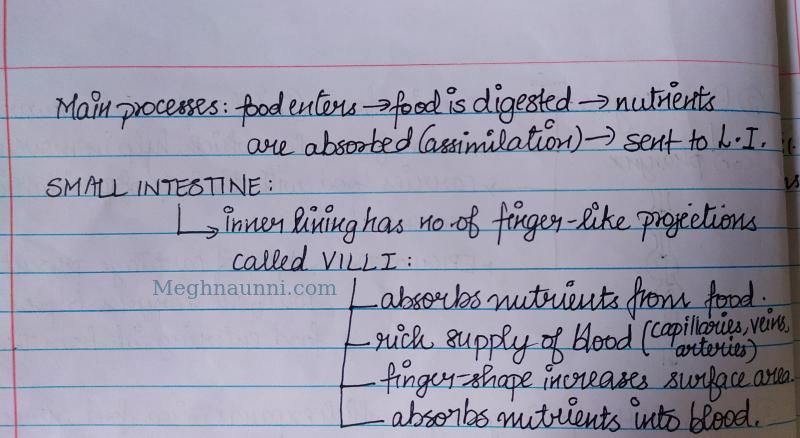 Main processes: food enters → food is digested → nutrients
are absorbed (assimilation) → sent to L.I.
SMALL INTESTINE:
↳ inner lining has no. of finger-like projections
called VILLI:
Meghnaunni.com
absorbs nutrients from food.
rich supply of blood (capillaries, veins,
arteries)
finger-shape increases surface area.
absorbs nutrients into blood.